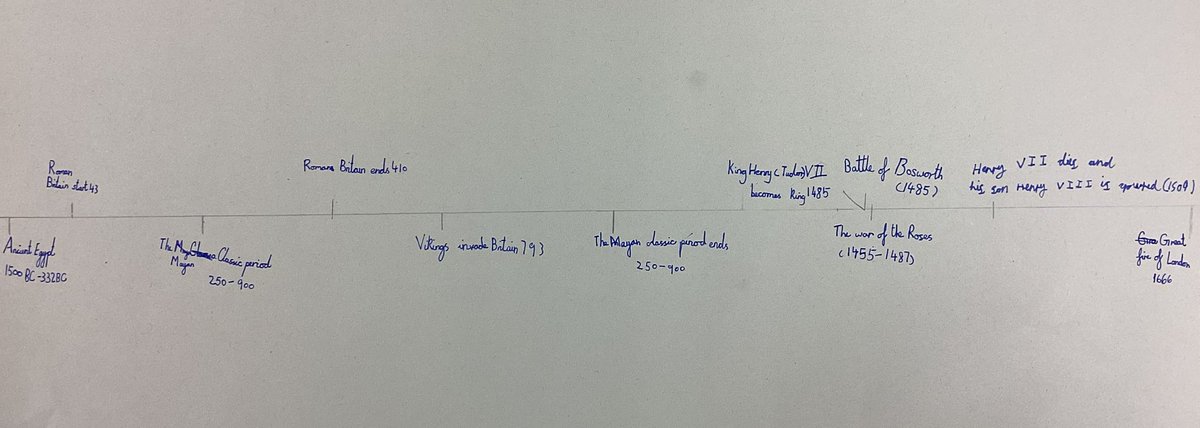 Roman
Britain start 43
Ancient Egypt
1500 BC-332BC
The Classic period
Mayan
250-900
Romans Britain ends 410
Vikings invade Britain 793
The Mayan classic period ends
250-900
King Henry (Tudor) VII
becomes King 1485
Battle of Bosworth
(1485)
The war of the Roses
(1455-1487)
Henry VII dies and
his son Henry VIII is (1509)
Great
fire of London
1666